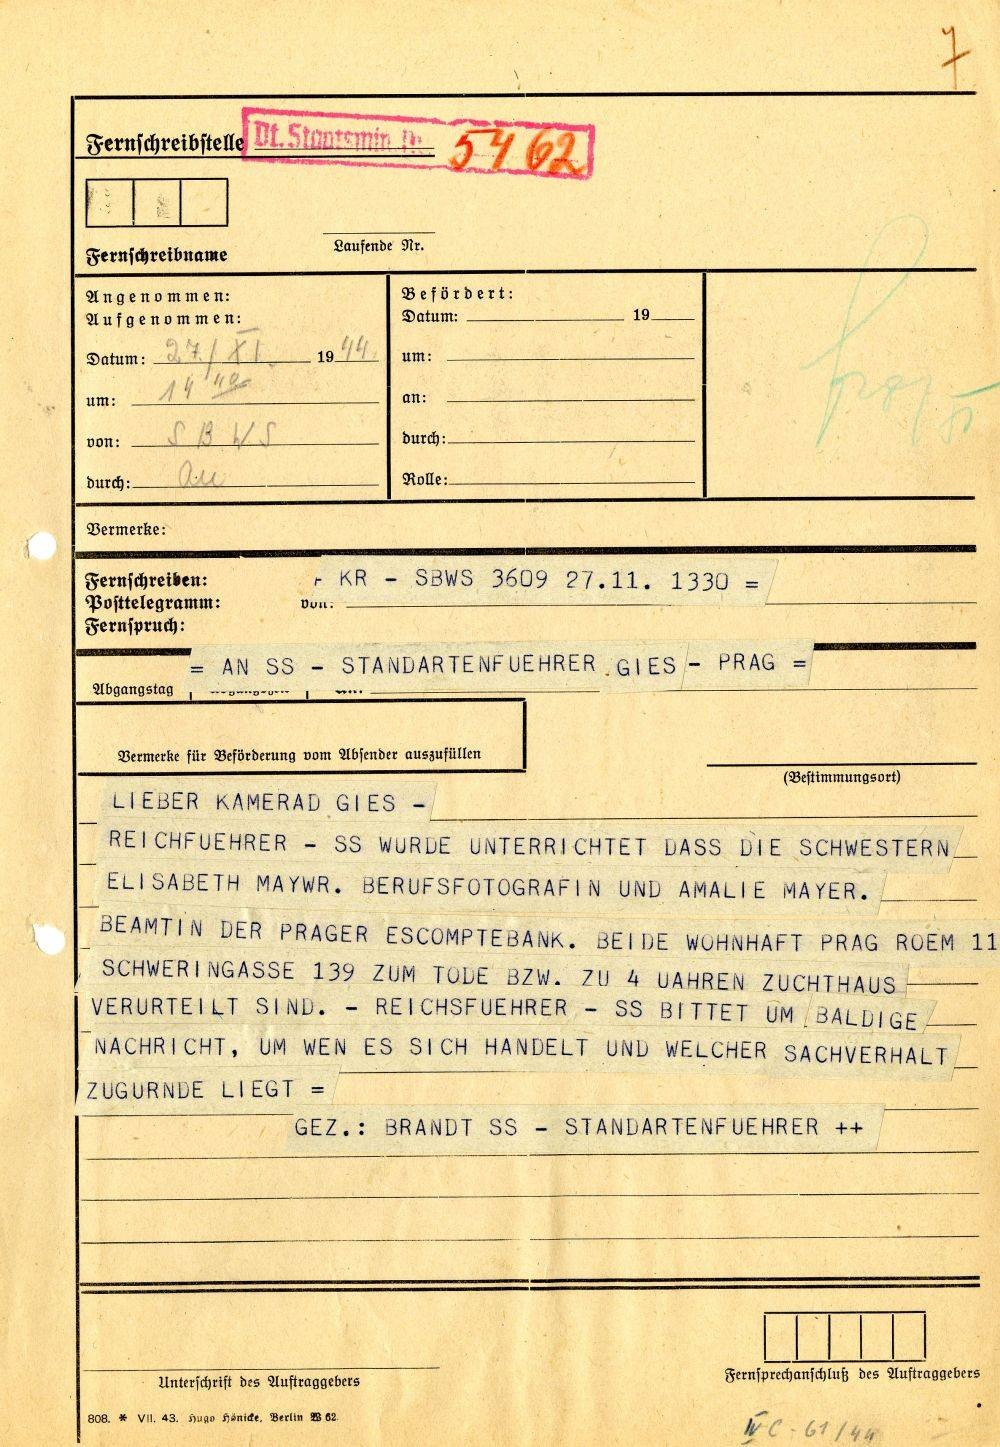 7
Fernschreibstelle Dt. Staatsmin. Nr. 5462
Laufende Nr.
Fernschreibname
Angenommen:
Aufgenommen:
Datum: 27./XI. 1944.
um: 14 40
von: SBWS
durch:
Befördert:
Datum: 19
um:
an:
durch:
Rolle:
Vermerke:
Fernschreiben:
Posttelegramm: von:
Fernspruch:
KR - SBWS 3609 27.11. 1330 =
= AN SS - STANDARTENFUEHRER GIES - PRAG =
Abgangstag
Vermerke für Beförderung vom Absender auszufüllen
(Bestimmungsort)
LIEBER KAMERAD GIES -
REICHFUEHRER - SS WURDE UNTERRICHTET DASS DIE SCHWESTERN
ELISABETH MAYWR. BERUFSFOTOGRAFIN UND AMALIE MAYER.
BEAMTIN DER PRAGER ESCOMPTEBANK. BEIDE WOHNHAFT PRAG ROEM 11
SCHWERINGASSE 139 ZUM TODE BZW. ZU 4 UAHREN ZUCHTHAUS
VERURTEILT SIND. - REICHSFUEHRER - SS BITTET UM BALDIGE
NACHRICHT, UM WEN ES SICH HANDELT UND WELCHER SACHVERHALT
ZUGURNDE LIEGT =
GEZ.: BRANDT SS - STANDARTENFUEHRER ++
Unterschrift des Auftraggebers
Fernsprechanschluß des Auftraggebers
808. * VII. 43. Hugo Hönicke, Berlin W 62
IV C - 61/44